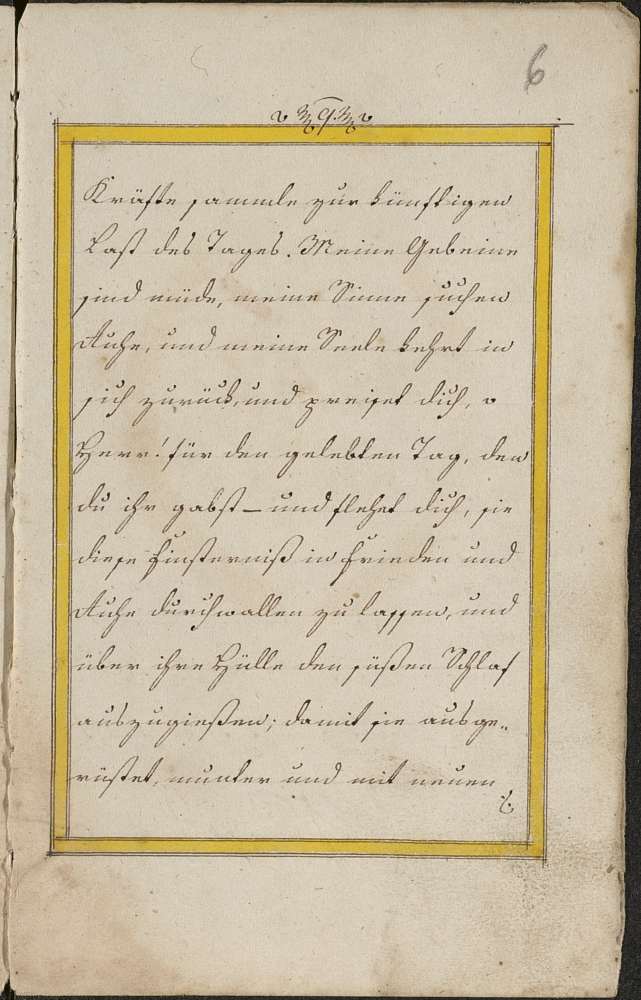 6
9.
Kräfte sammle zur künftigen
Last des Tages. Meine Gebeine
sind müde, meine Sinne suchen
Ruhe, und meine Seele kehrt in
sich zurück, und preiset dich, o
Herr! für den gelebten Tag, den
du ihr gabst – und flehet dich, sie
diese Finsterniß in Frieden und
Ruhe durchwallen zu lassen, und
über ihre Hülle den süßen Schlaf
auszugießen; damit sie ausge„
rüstet, munter und mit neuen